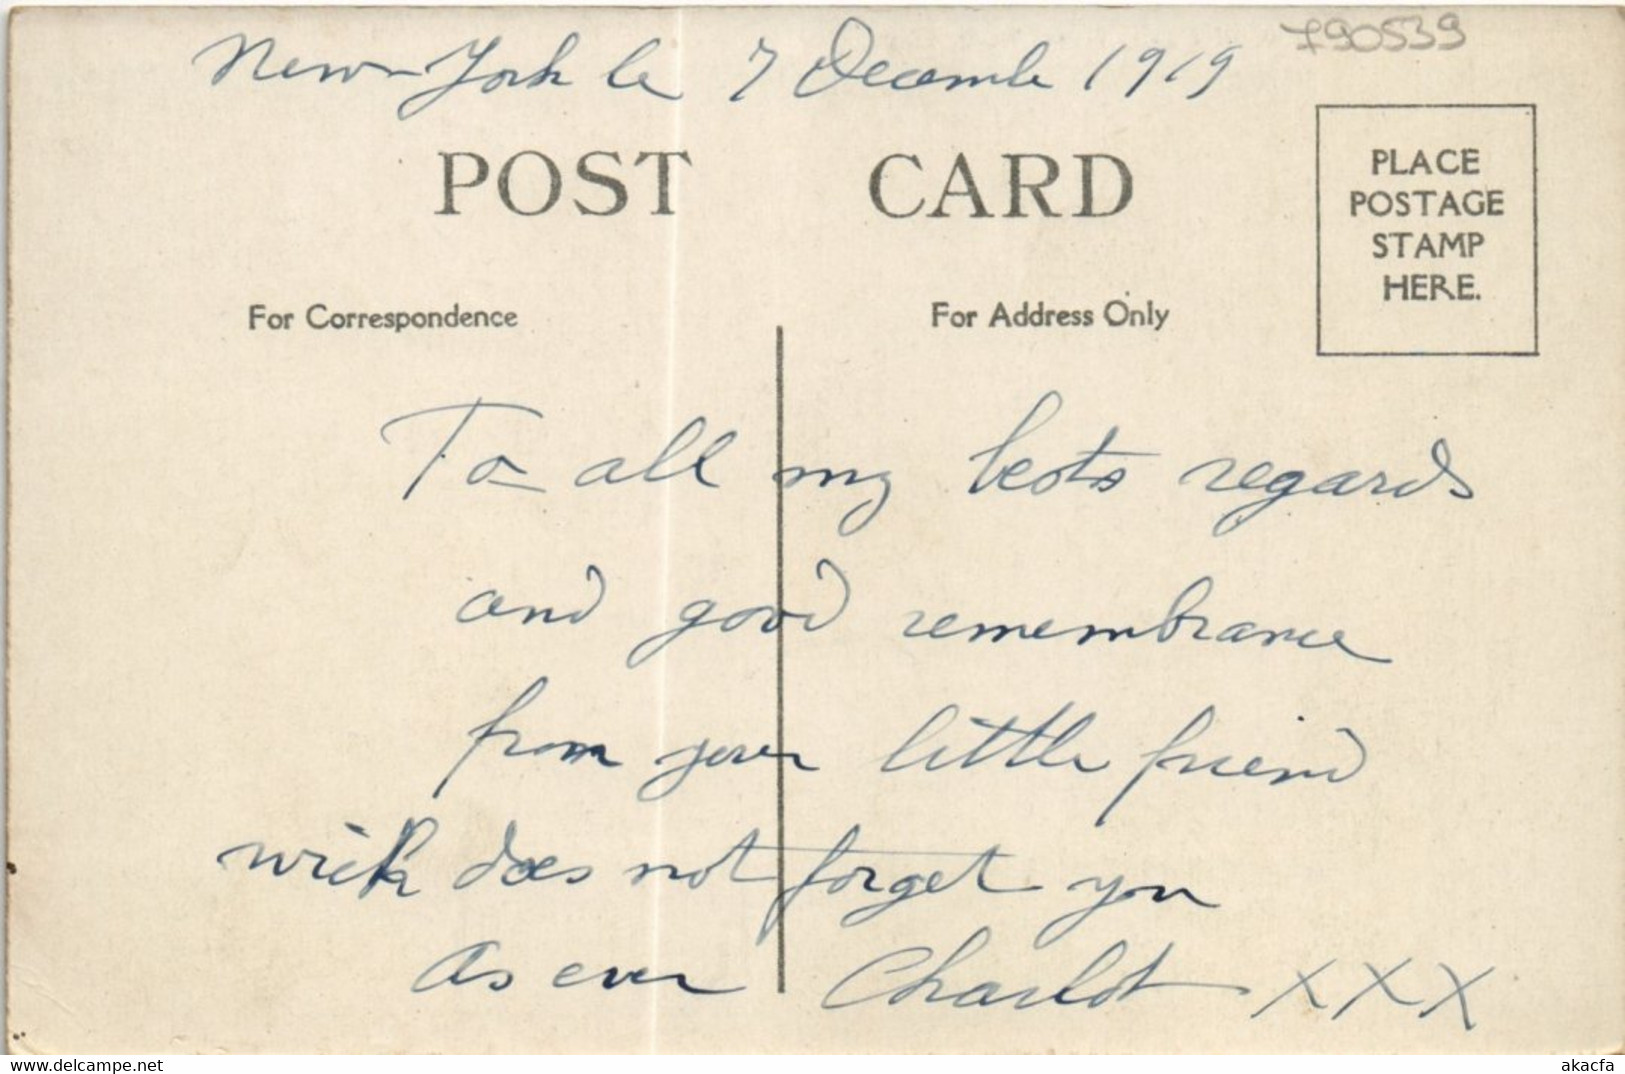 790539
New-York le 7 Decembe 1919
POST CARD
PLACE
POSTAGE
STAMP
HERE.
For Correspondence
For Address Only
To all my bests regards
and good remembrance
from your little friend
wich does not forget you
as ever Charlot XXX
www.delcampe.net
akacfa